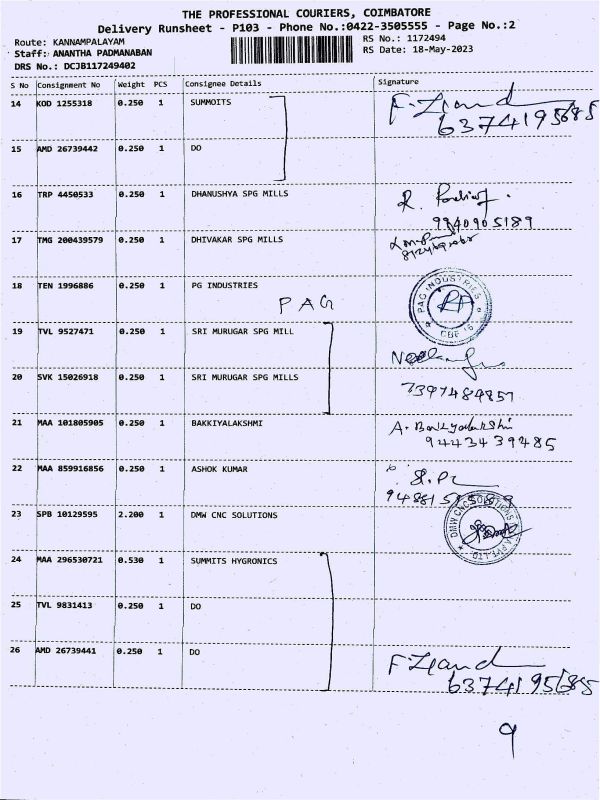 THE PROFESSIONAL COURIERS, COIMBATORE
Delivery Runsheet - P103 - Phone No.:0422-3505555 - Page No.:2
Route: KANNAMPALAYAM
RS No.: 1172494
Staff: ANANTHA PADMANABAN
RS Date: 18-May-2023
DRS No.: DCJB117249402
S No Consignment No Weight PCS Consignee Details Signature
14 KOD 1255318 0.250 1 SUMMOITS
6374195685
15 AMD 26739442 0.250 1 DO
16 TRP 4450533 0.250 1 DHANUSHYA SPG MILLS
R.
9940905189
17 TMG 200439579 0.250 1 DHIVAKAR SPG MILLS
18 TEN 1996886 0.250 1 PG INDUSTRIES
PAG
PAG INDUSTRIES
19 TVL 9527471 0.250 1 SRI MURUGAR SPG MILL
20 SVK 15026918 0.250 1 SRI MURUGAR SPG MILLS
7397484857
21 MAA 101805905 0.250 1 BAKKIYALAKSHMI
9443439485
22 MAA 859916856 0.250 1 ASHOK KUMAR
23 SPB 10129595 2.200 1 DMW CNC SOLUTIONS
DMW CNC SOLUTIONS
24 MAA 296530721 0.530 1 SUMMITS HYGRONICS
25 TVL 9831413 0.250 1 DO
26 AMD 26739441 0.250 1 DO
6374195685
9